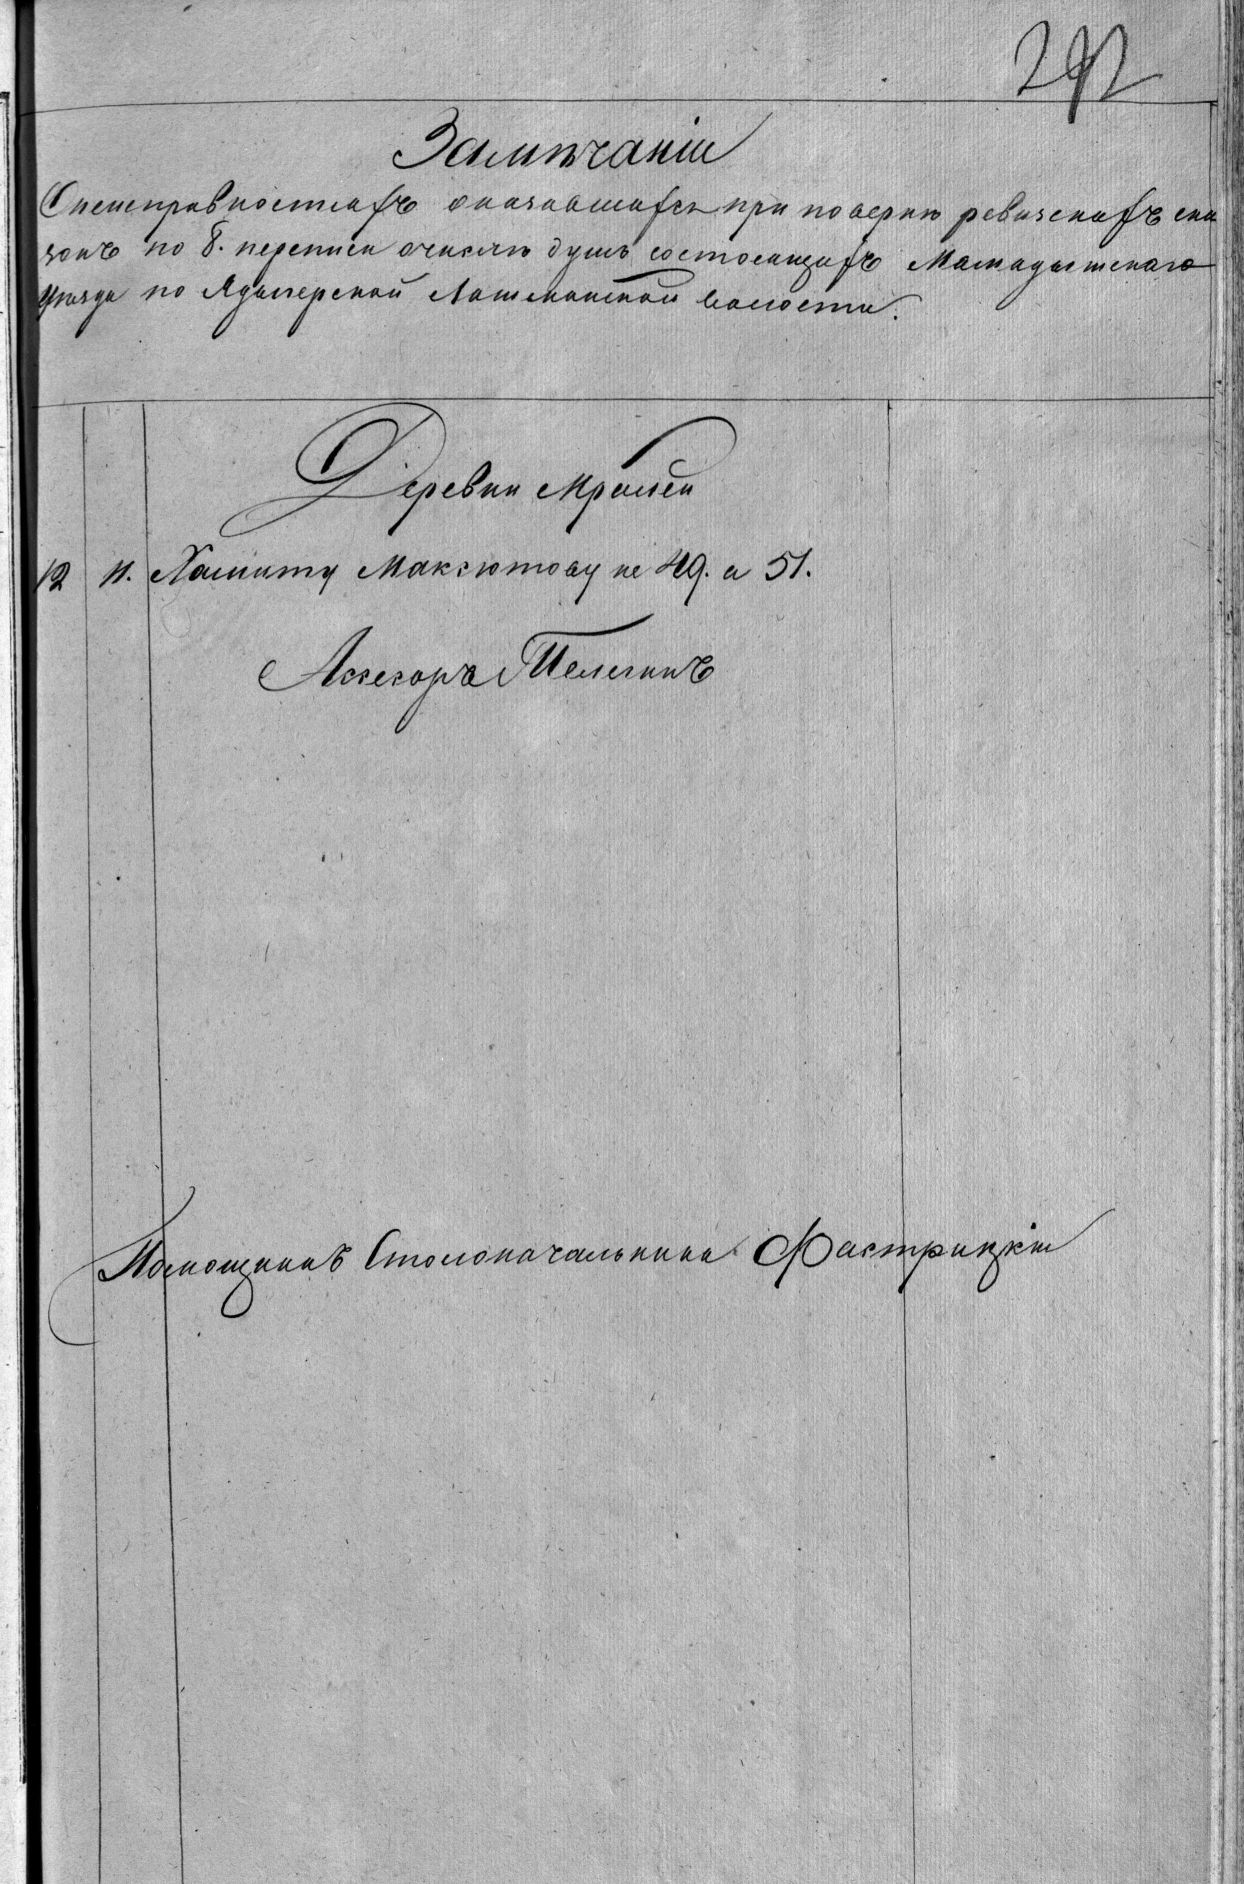 242
Замѣчаніи
О неисправностяхъ оказавшихся при поверкѣ ревизскихъ ска
зокъ по 8. переписи о числѣ душъ состоящихъ Мамадышскаго
уѣзда по Ядыгерской Лашманской волости.
Деревни
12 п. Хамиту Максютову не 49. а 51.
Асессоръ Телегинъ
Помощникъ Столоначальника